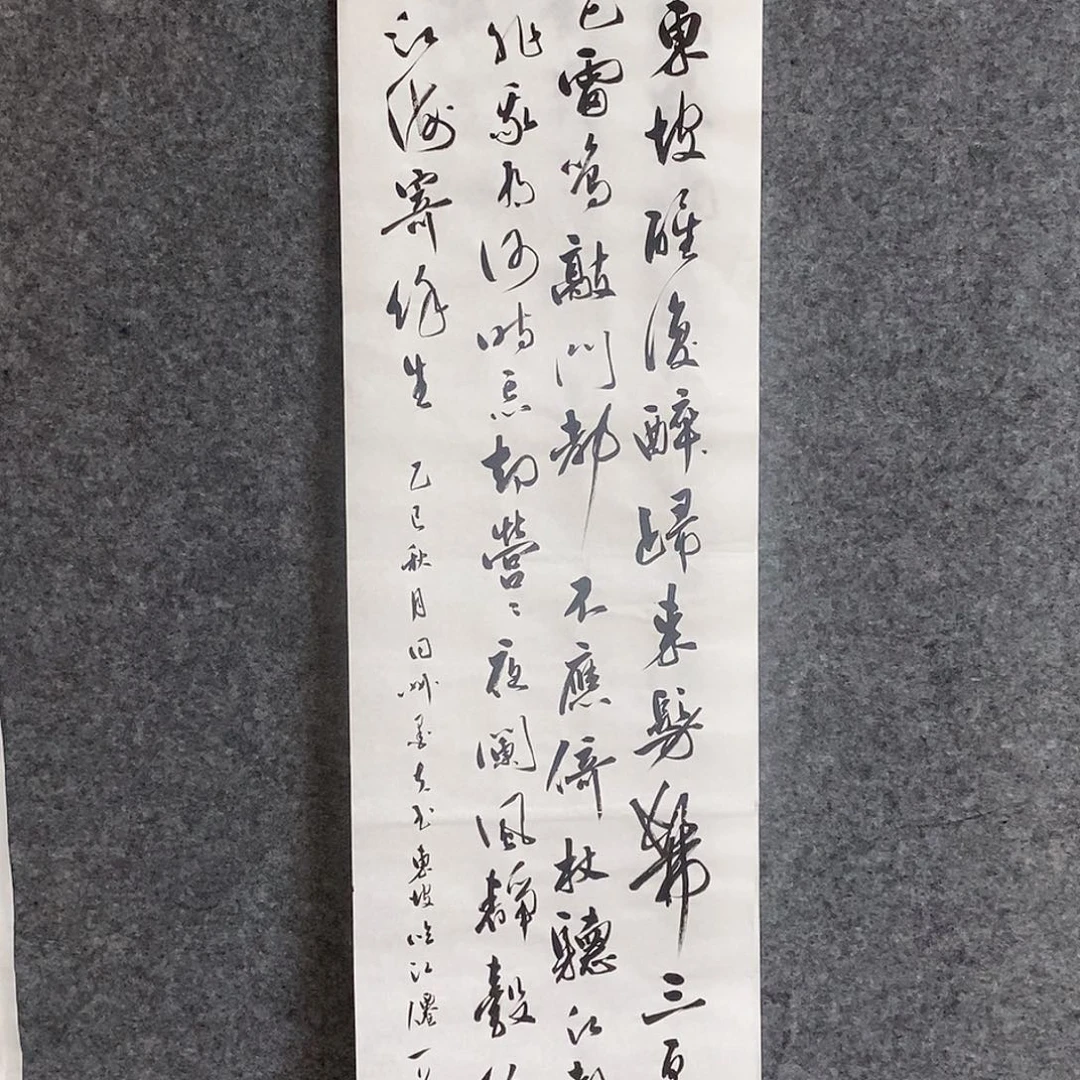 東坡醒復醉歸來髣髴三更
已雷鳴敲門都不應倚杖聽江
非我有何時忘却營〻夜瀾風靜縠
江海寄餘生 乙巳秋月 東坡臨江僊一